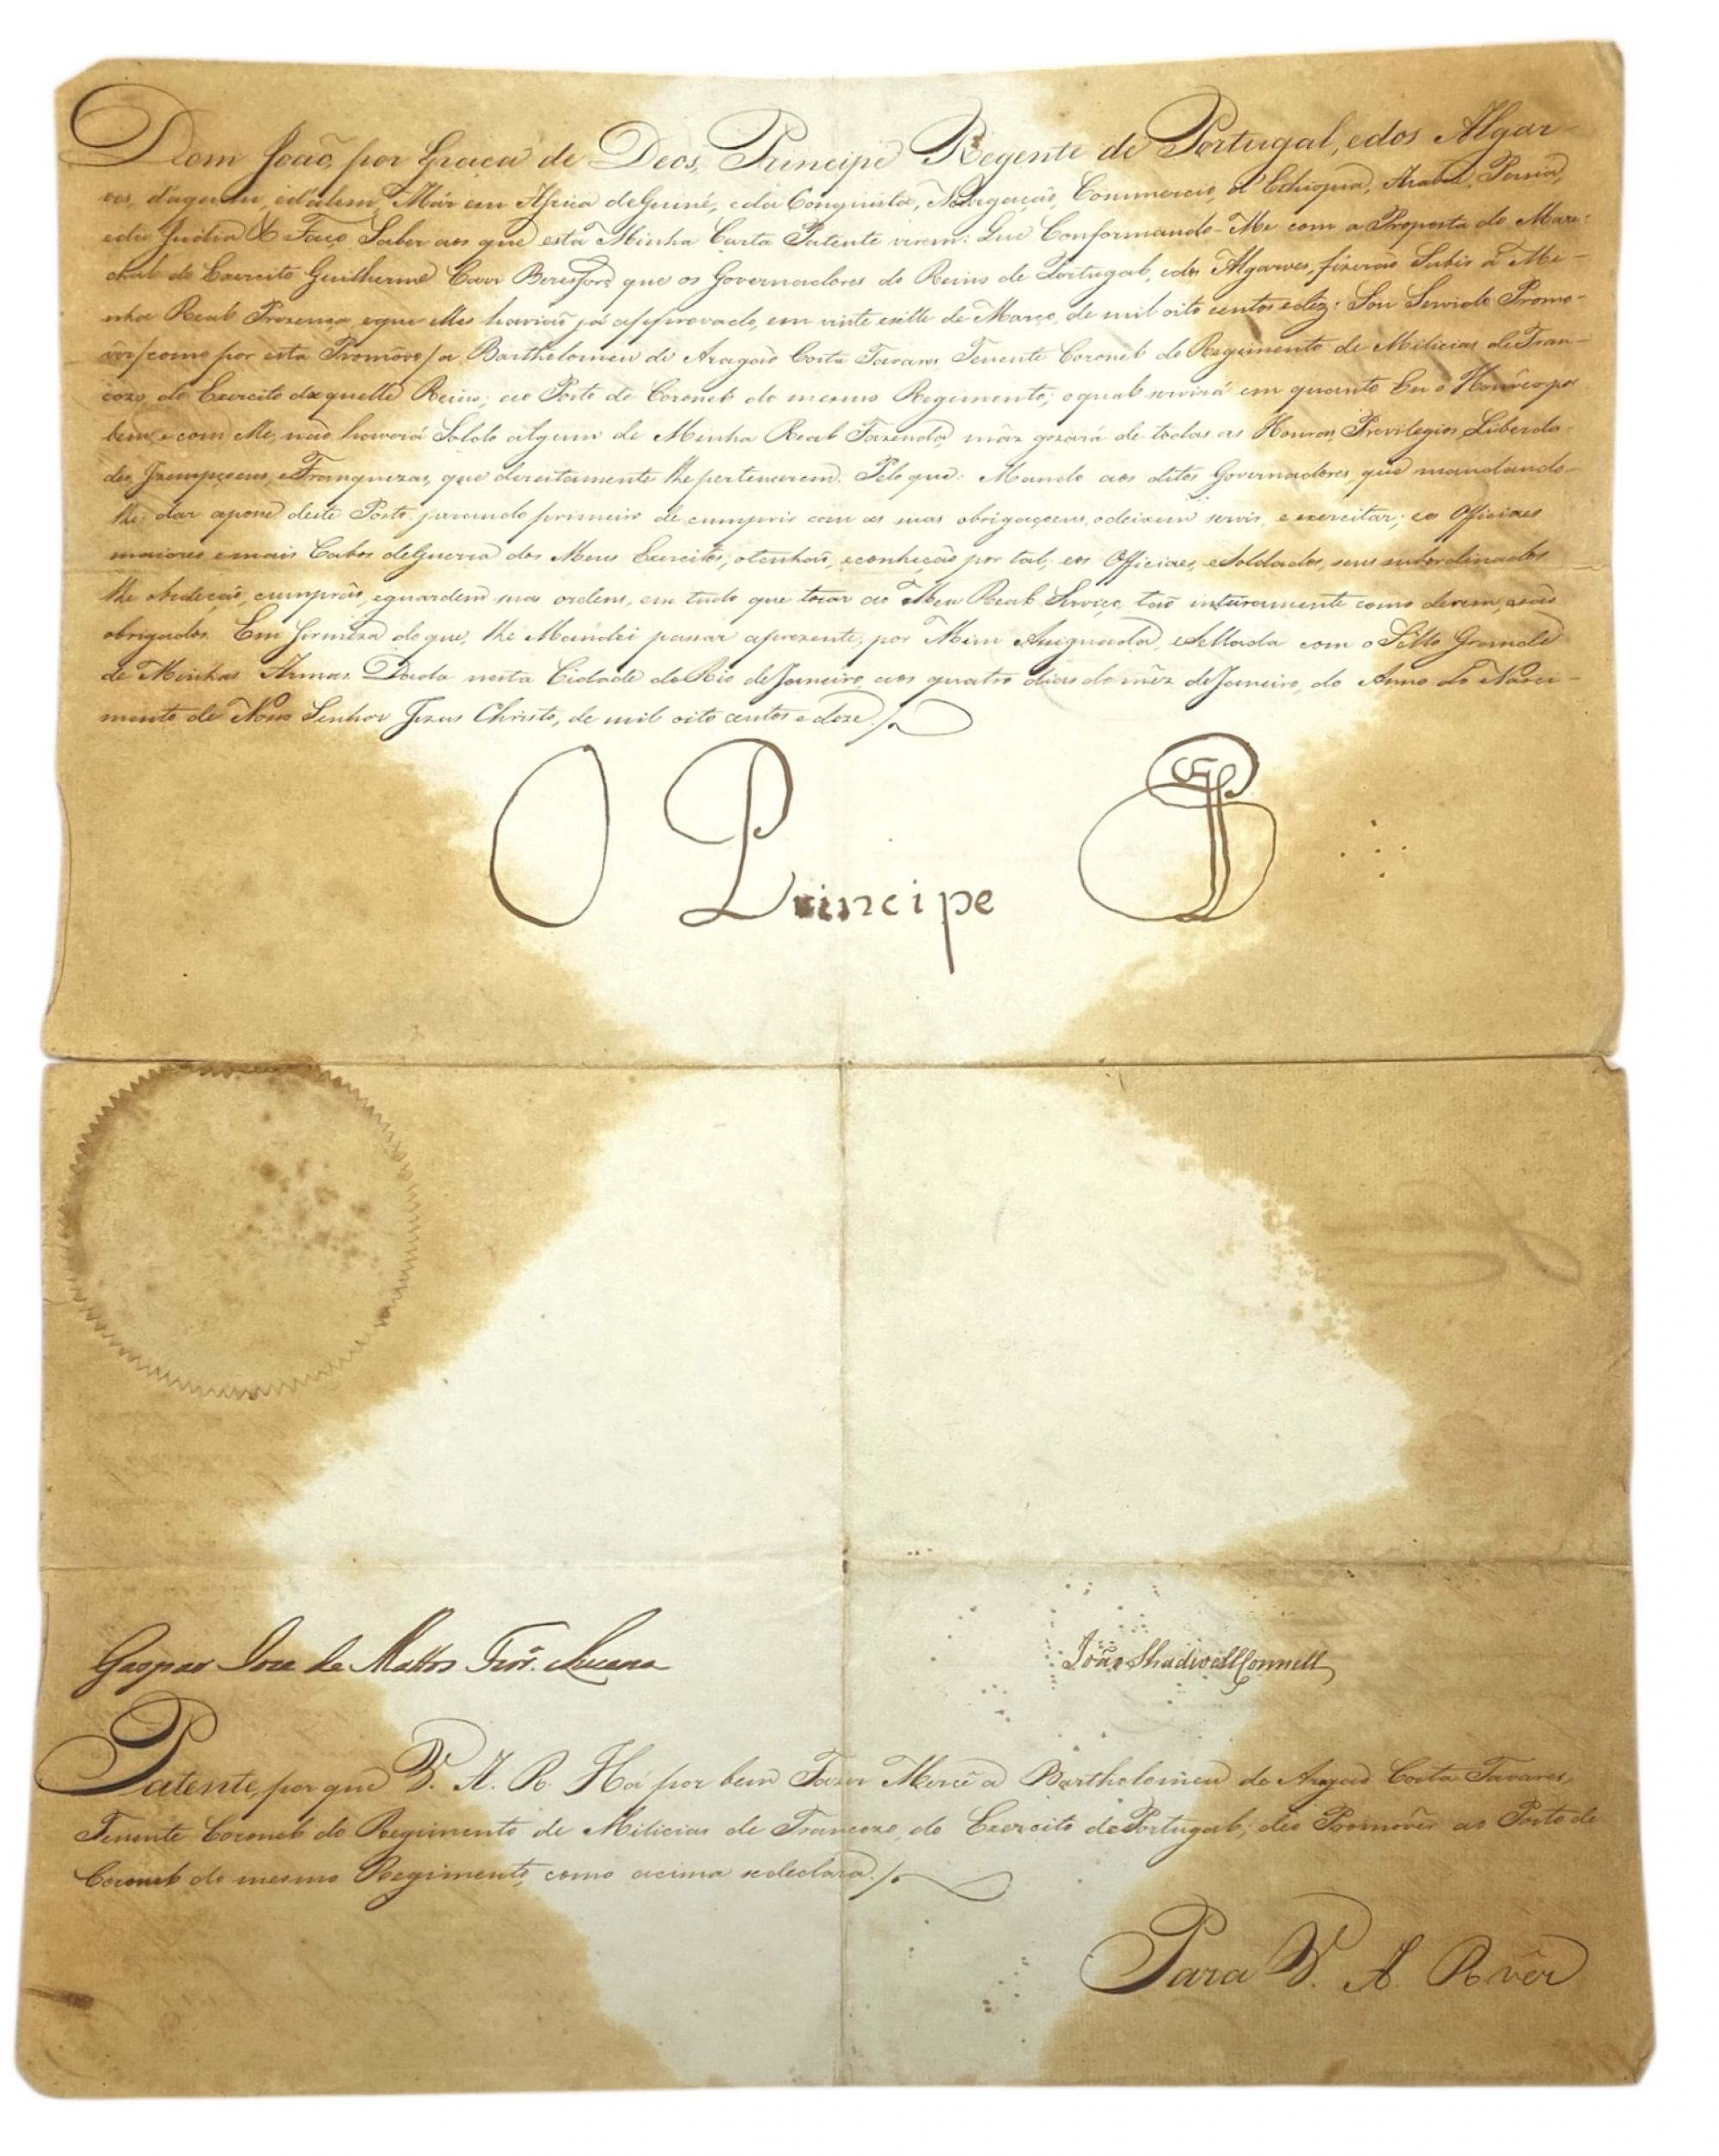 Dom João, por Graça de Deos, Principe Regente de Portugal, e dos Algar-
ves, d'aquem, e d'alem, Már em Africa de Guiné, e da Conquista, Navegação, Commercio, d'Ethiopia, Arabia, Persia,
e da India &c Faço Saber aos que esta Minha Carta Patente virem: Que Conformando-Me com a Proposta do Mare-
chal do Exercito Guilherme Carr Beresford que os Governadores do Reino de Portugal, e dos Algarves, fizerão Subir á Mi-
nha Real Prezença, e que elles havião já approvado, em vinte e sette de Março, de mil oito centos e dez: Sou Servido Promo-
vêr/como por esta Promôvo/a Bartholomeu de Aragaõ Costa Tavares, Tenente Coronel do Regimento de Milicias de Tran-
cozo, do Exercito daquelle Reino, ao Posto de Coronel do mesmo Regimento; o qual servirá em quanto Eu o Houver por
bem, e com elle, naõ haverá Soldo algum de Minha Real Fazenda, màz gozará de todas as Honras, Previlegios, Liberda-
des, Izempçoens, e Franquezas, que direitamente lhe pertencerem. Pelo que: Mando aos ditos Governadores, que mandando-
lhe dar a posse deste Posto, jurando primeiro de cumprir com as suas obrigaçoens, o deixem servir, e exercitar; e os Officiaes
maiores e mais Cabos de Guerra dos Meus Exercitos, o tenhaõ, e conheçaõ por tal; e os Officiaes, e Soldados, seus subordinados
lhe obedeçaõ, cumpraõ, e guardem suas ordens, em tudo que tocar ao Meu Real Serviço, taõ inteiramente como devem, e saõ
obrigados. Em firmeza do que, lhe Mandei passar a prezente, por Mim Assignada, e Sellada com o Sello Grande
de Minhas Armas. Dada nesta Cidade do Rio de Janeiro, aos quatro dias do mêz de Janeiro, do Anno do Nasci-
mento de Nosso Senhor Jezus Christo, de mil oito centos e doze./
O Principe
Gaspar Joze de Mattos Ferr.ª e Lucena
João Shadwell Connell
Patente, por que V. A. R. Há por bem Fazer Mercê a Bartholomeu de Aragaõ Costa Tavares,
Tenente Coronel do Regimento de Milicias de Trancozo, do Exercito de Portugal; de o Promovêr ao Posto de
Coronel do mesmo Regimento, como acima se declara./
Para V. A. R. vêr